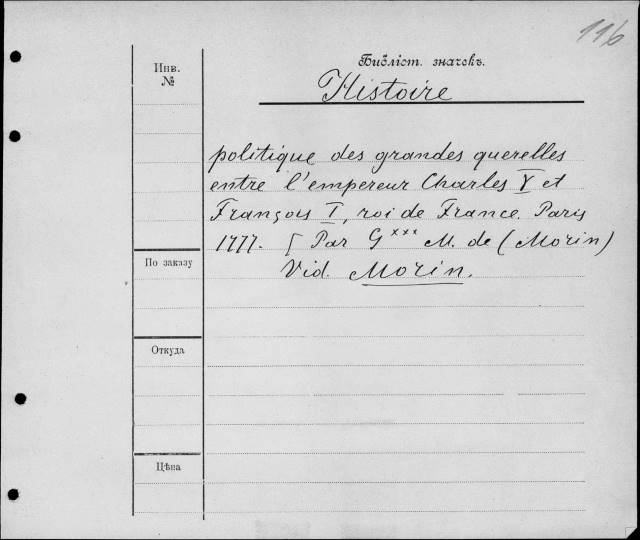 116
Инв.
№
Библіст. значокъ.
Histoire
politique des grandes querelles
entre l'empereur Charles V et
François I, roi de France. Paris
1777. [ Par G*** M. de (Morin)
Vid. Morin.
По заказу
Откуда
Цѣна